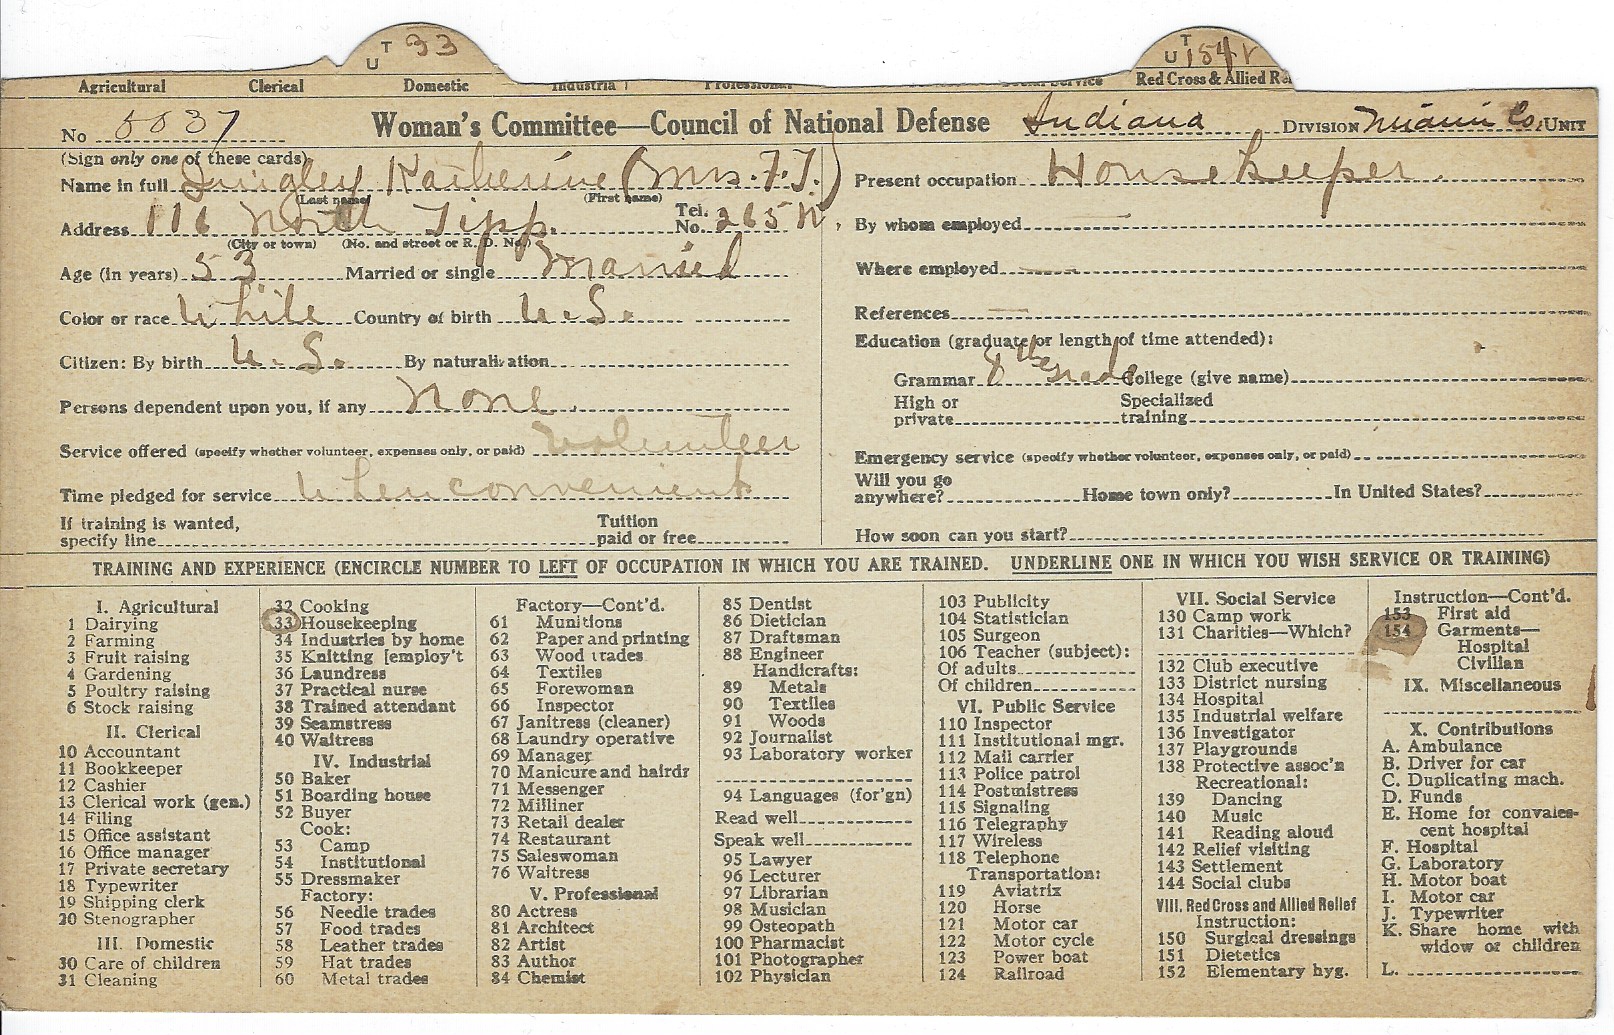 T 33
U
T 154 V
U
Agricultural Clerical Domestic Industrial Professional Social Service Red Cross & Allied Re
No 5537 Woman's Committee—Council of National Defense Indiana DIVISION Miami Co. UNIT
(Sign only one of these cards)
Name in full Dingley Katherine (Mrs. F. T.)
(Last name) (First name)
Address 116 North Tipp. Tel. No. 265 W
(City or town) (No. and street or R. D. No.)
Age (in years) 53 Married or single Married
Color or race White Country of birth U.S.
Citizen: By birth U.S. By naturalization
Persons dependent upon you, if any None
Service offered (specify whether volunteer, expenses only, or paid) Volunteer
Time pledged for service When convenient
If training is wanted, specify line Tuition paid or free
Present occupation Housekeeper.
By whom employed
Where employed
References
Education (graduate or length of time attended):
Grammar 8th Grade College (give name)
High or private Specialized training
Emergency service (specify whether volunteer, expenses only, or paid)
Will you go anywhere? Home town only? In United States?
How soon can you start?
TRAINING AND EXPERIENCE (ENCIRCLE NUMBER TO LEFT OF OCCUPATION IN WHICH YOU ARE TRAINED. UNDERLINE ONE IN WHICH YOU WISH SERVICE OR TRAINING)
I. Agricultural
1 Dairying
2 Farming
3 Fruit raising
4 Gardening
5 Poultry raising
6 Stock raising
II. Clerical
10 Accountant
11 Bookkeeper
12 Cashier
13 Clerical work (gen.)
14 Filing
15 Office assistant
16 Office manager
17 Private secretary
18 Typewriter
19 Shipping clerk
20 Stenographer
III. Domestic
30 Care of children
31 Cleaning
32 Cooking
33 Housekeeping
34 Industries by home
35 Knitting [employ't
36 Laundress
37 Practical nurse
38 Trained attendant
39 Seamstress
40 Waitress
IV. Industrial
50 Baker
51 Boarding house
52 Buyer
Cook:
53 Camp
54 Institutional
55 Dressmaker
Factory:
56 Needle trades
57 Food trades
58 Leather trades
59 Hat trades
60 Metal trades
Factory—Cont'd.
61 Munitions
62 Paper and printing
63 Wood trades
64 Textiles
65 Forewoman
66 Inspector
67 Janitress (cleaner)
68 Laundry operative
69 Manager
70 Manicure and hairdr
71 Messenger
72 Milliner
73 Retail dealer
74 Restaurant
75 Saleswoman
76 Waitress
V. Professional
80 Actress
81 Architect
82 Artist
83 Author
84 Chemist
85 Dentist
86 Dietician
87 Draftsman
88 Engineer
Handicrafts:
89 Metals
90 Textiles
91 Woods
92 Journalist
93 Laboratory worker
94 Languages (for'gn)
Read well
Speak well
95 Lawyer
96 Lecturer
97 Librarian
98 Musician
99 Osteopath
100 Pharmacist
101 Photographer
102 Physician
103 Publicity
104 Statistician
105 Surgeon
106 Teacher (subject):
Of adults
Of children
VI. Public Service
110 Inspector
111 Institutional mgr.
112 Mail carrier
113 Police patrol
114 Postmistress
115 Signaling
116 Telegraphy
117 Wireless
118 Telephone
Transportation:
119 Aviatrix
120 Horse
121 Motor car
122 Motor cycle
123 Power boat
124 Railroad
VII. Social Service
130 Camp work
131 Charities—Which?
132 Club executive
133 District nursing
134 Hospital
135 Industrial welfare
136 Investigator
137 Playgrounds
138 Protective assoc'n
Recreational:
139 Dancing
140 Music
141 Reading aloud
142 Relief visiting
143 Settlement
144 Social clubs
VIII. Red Cross and Allied Relief
Instruction:
150 Surgical dressings
151 Dietetics
152 Elementary hyg.
Instruction—Cont'd.
153 First aid
154 Garments—
Hospital
Civilian
IX. Miscellaneous
X. Contributions
A. Ambulance
B. Driver for car
C. Duplicating mach.
D. Funds
E. Home for convales-
cent hospital
F. Hospital
G. Laboratory
H. Motor boat
I. Motor car
J. Typewriter
K. Share home with
widow or children
L.